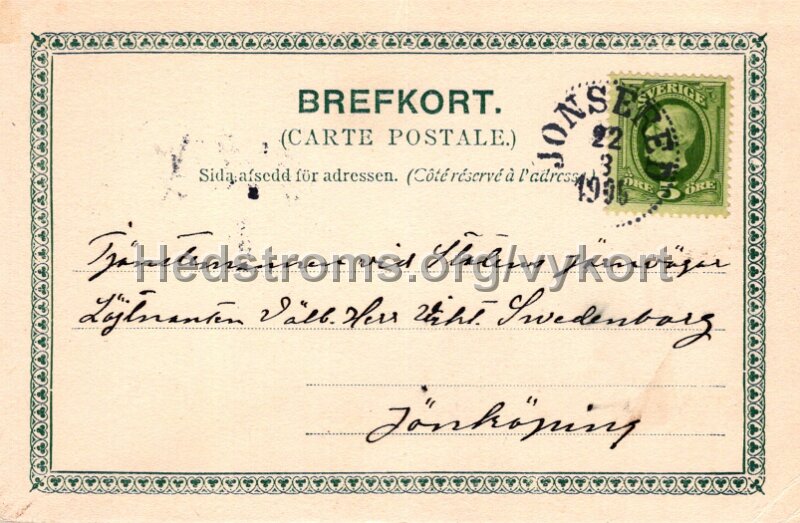 BREFKORT.
(CARTE POSTALE.)
Sida afsedd för adressen. (Côté réservé à l'adresse.)
SVERIGE
ÖRE 5 ÖRE
JONSERED
22
3
1906
Tjänstemannen vid Statens Järnvägar
Hedstroms.org/vykort
Löjtnanten Välb. Herr Vikt. Swedenborg
Jönköping